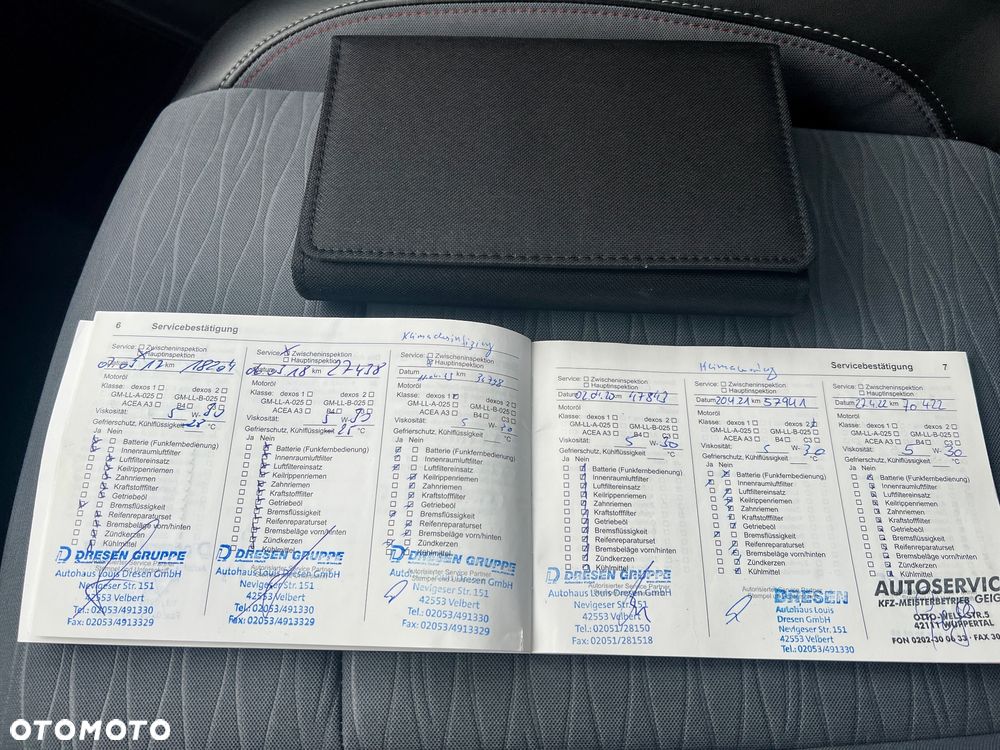 6 Servicebestätigung
Klimadesinfizierung
Service: Zwischeninspektion
Hauptinspektion
Datum 17 km 18204
Motoröl
Klasse: dexos 1 dexos 2
GM-LL-A-025 GM-LL-B-025
ACEA A3 B4
Viskosität: 5 W-
Gefrierschutz, Kühlflüssigkeit -28 °C
Ja Nein
Batterie (Funkfernbedienung)
Innenraumluftfilter
Luftfiltereinsatz
Keilrippenriemen
Zahnriemen
Kraftstofffilter
Getriebeöl
Bremsflüssigkeit
Reifenreparaturset
Bremsbeläge vorn/hinten
Zündkerzen
Kühlmittel
DRESEN GRUPPE
Autohaus Louis Dresen GmbH
Nevigeser Str. 151
42553 Velbert
Tel.: 02053/491330
Fax: 02053/4913329
Service: Zwischeninspektion
Hauptinspektion
Datum 18 km 27438
Motoröl
Klasse: dexos 1 dexos 2
GM-LL-A-025 GM-LL-B-025
ACEA A3 B4
Viskosität: 5 W-
Gefrierschutz, Kühlflüssigkeit 25 °C
Ja Nein
Batterie (Funkfernbedienung)
Innenraumluftfilter
Luftfiltereinsatz
Keilrippenriemen
Zahnriemen
Kraftstofffilter
Getriebeöl
Bremsflüssigkeit
Reifenreparaturset
Bremsbeläge vorn/hinten
Zündkerzen
Kühlmittel
DRESEN GRUPPE
Autorisierter Service Partner
Autohaus Louis Dresen GmbH
Nevigeser Str. 151
42553 Velbert
Tel.: 02053/491330
Fax: 02053/4913329
Service: Zwischeninspektion
Hauptinspektion
Datum km
Motoröl
Klasse: dexos 1 dexos 2
GM-LL-A-025 GM-LL-B-025
ACEA A3 B4
Viskosität: 5 W- 30
Gefrierschutz, Kühlflüssigkeit °C
Ja Nein
Batterie (Funkfernbedienung)
Innenraumluftfilter
Luftfiltereinsatz
Keilrippenriemen
Zahnriemen
Kraftstofffilter
Getriebeöl
Bremsflüssigkeit
Reifenreparaturset
Bremsbeläge vorn/hinten
Zündkerzen
Kühlmittel
DRESEN GRUPPE
Autorisierter Service Partner
Autohaus Louis Dresen GmbH
Nevigeser Str. 151
42553 Velbert
Tel.: 02053/491330
Fax: 02053/4913329
Servicebestätigung 7
Service: Zwischeninspektion
Hauptinspektion
Datum 02.04.20 km 47843
Motoröl
Klasse: dexos 1 dexos 2
GM-LL-A-025 GM-LL-B-025
ACEA A3 B4 C3
Viskosität: 5 W- 30
Gefrierschutz, Kühlflüssigkeit °C
Ja Nein
Batterie (Funkfernbedienung)
Innenraumluftfilter
Luftfiltereinsatz
Keilrippenriemen
Zahnriemen
Kraftstofffilter
Getriebeöl
Bremsflüssigkeit
Reifenreparaturset
Bremsbeläge vorn/hinten
Zündkerzen
Kühlmittel
DRESEN GRUPPE
Autorisierter Service Partner
Autohaus Louis Dresen GmbH
Nevigeser Str. 151
42553 Velbert
Tel.: 02051/28150
Fax: 02051/281518
Service: Zwischeninspektion
Hauptinspektion
Datum 20.4.21 km 57941
Motoröl
Klasse: dexos 1 dexos 2
GM-LL-A-025 GM-LL-B-025
ACEA A3 B4 C3
Viskosität: 5 W- 30
Gefrierschutz, Kühlflüssigkeit °C
Ja Nein
Batterie (Funkfernbedienung)
Innenraumluftfilter
Luftfiltereinsatz
Keilrippenriemen
Zahnriemen
Kraftstofffilter
Getriebeöl
Bremsflüssigkeit
Reifenreparaturset
Bremsbeläge vorn/hinten
Zündkerzen
Kühlmittel
DRESEN
Autohaus Louis
Dresen GmbH
Nevigeser Str. 151
42553 Velbert
Tel.: 02053/491330
Service: Zwischeninspektion
Hauptinspektion
Datum 22 km 70 422
Motoröl
Klasse: dexos 1 dexos 2
GM-LL-A-025 GM-LL-B-025
ACEA A3 B4 C3
Viskosität: 5 W- 30
Gefrierschutz, Kühlflüssigkeit °C
Ja Nein
Batterie (Funkfernbedienung)
Innenraumluftfilter
Luftfiltereinsatz
Keilrippenriemen
Zahnriemen
Kraftstofffilter
Getriebeöl
Bremsflüssigkeit
Reifenreparaturset
Bremsbeläge vorn/hinten
Zündkerzen
Kühlmittel
AUTOSERVIC
KFZ-MEISTERBETRIEB GEIG
OTTO-WELS-STR.5
42111 WUPPERTAL
FON 0202-30 06 33 · FAX 30
OTOMOTO